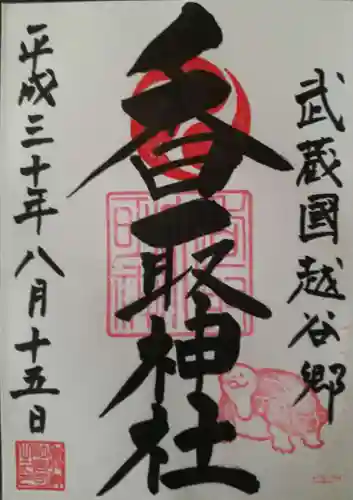 武蔵國越谷郷
香取神社
平成三十年八月十五日